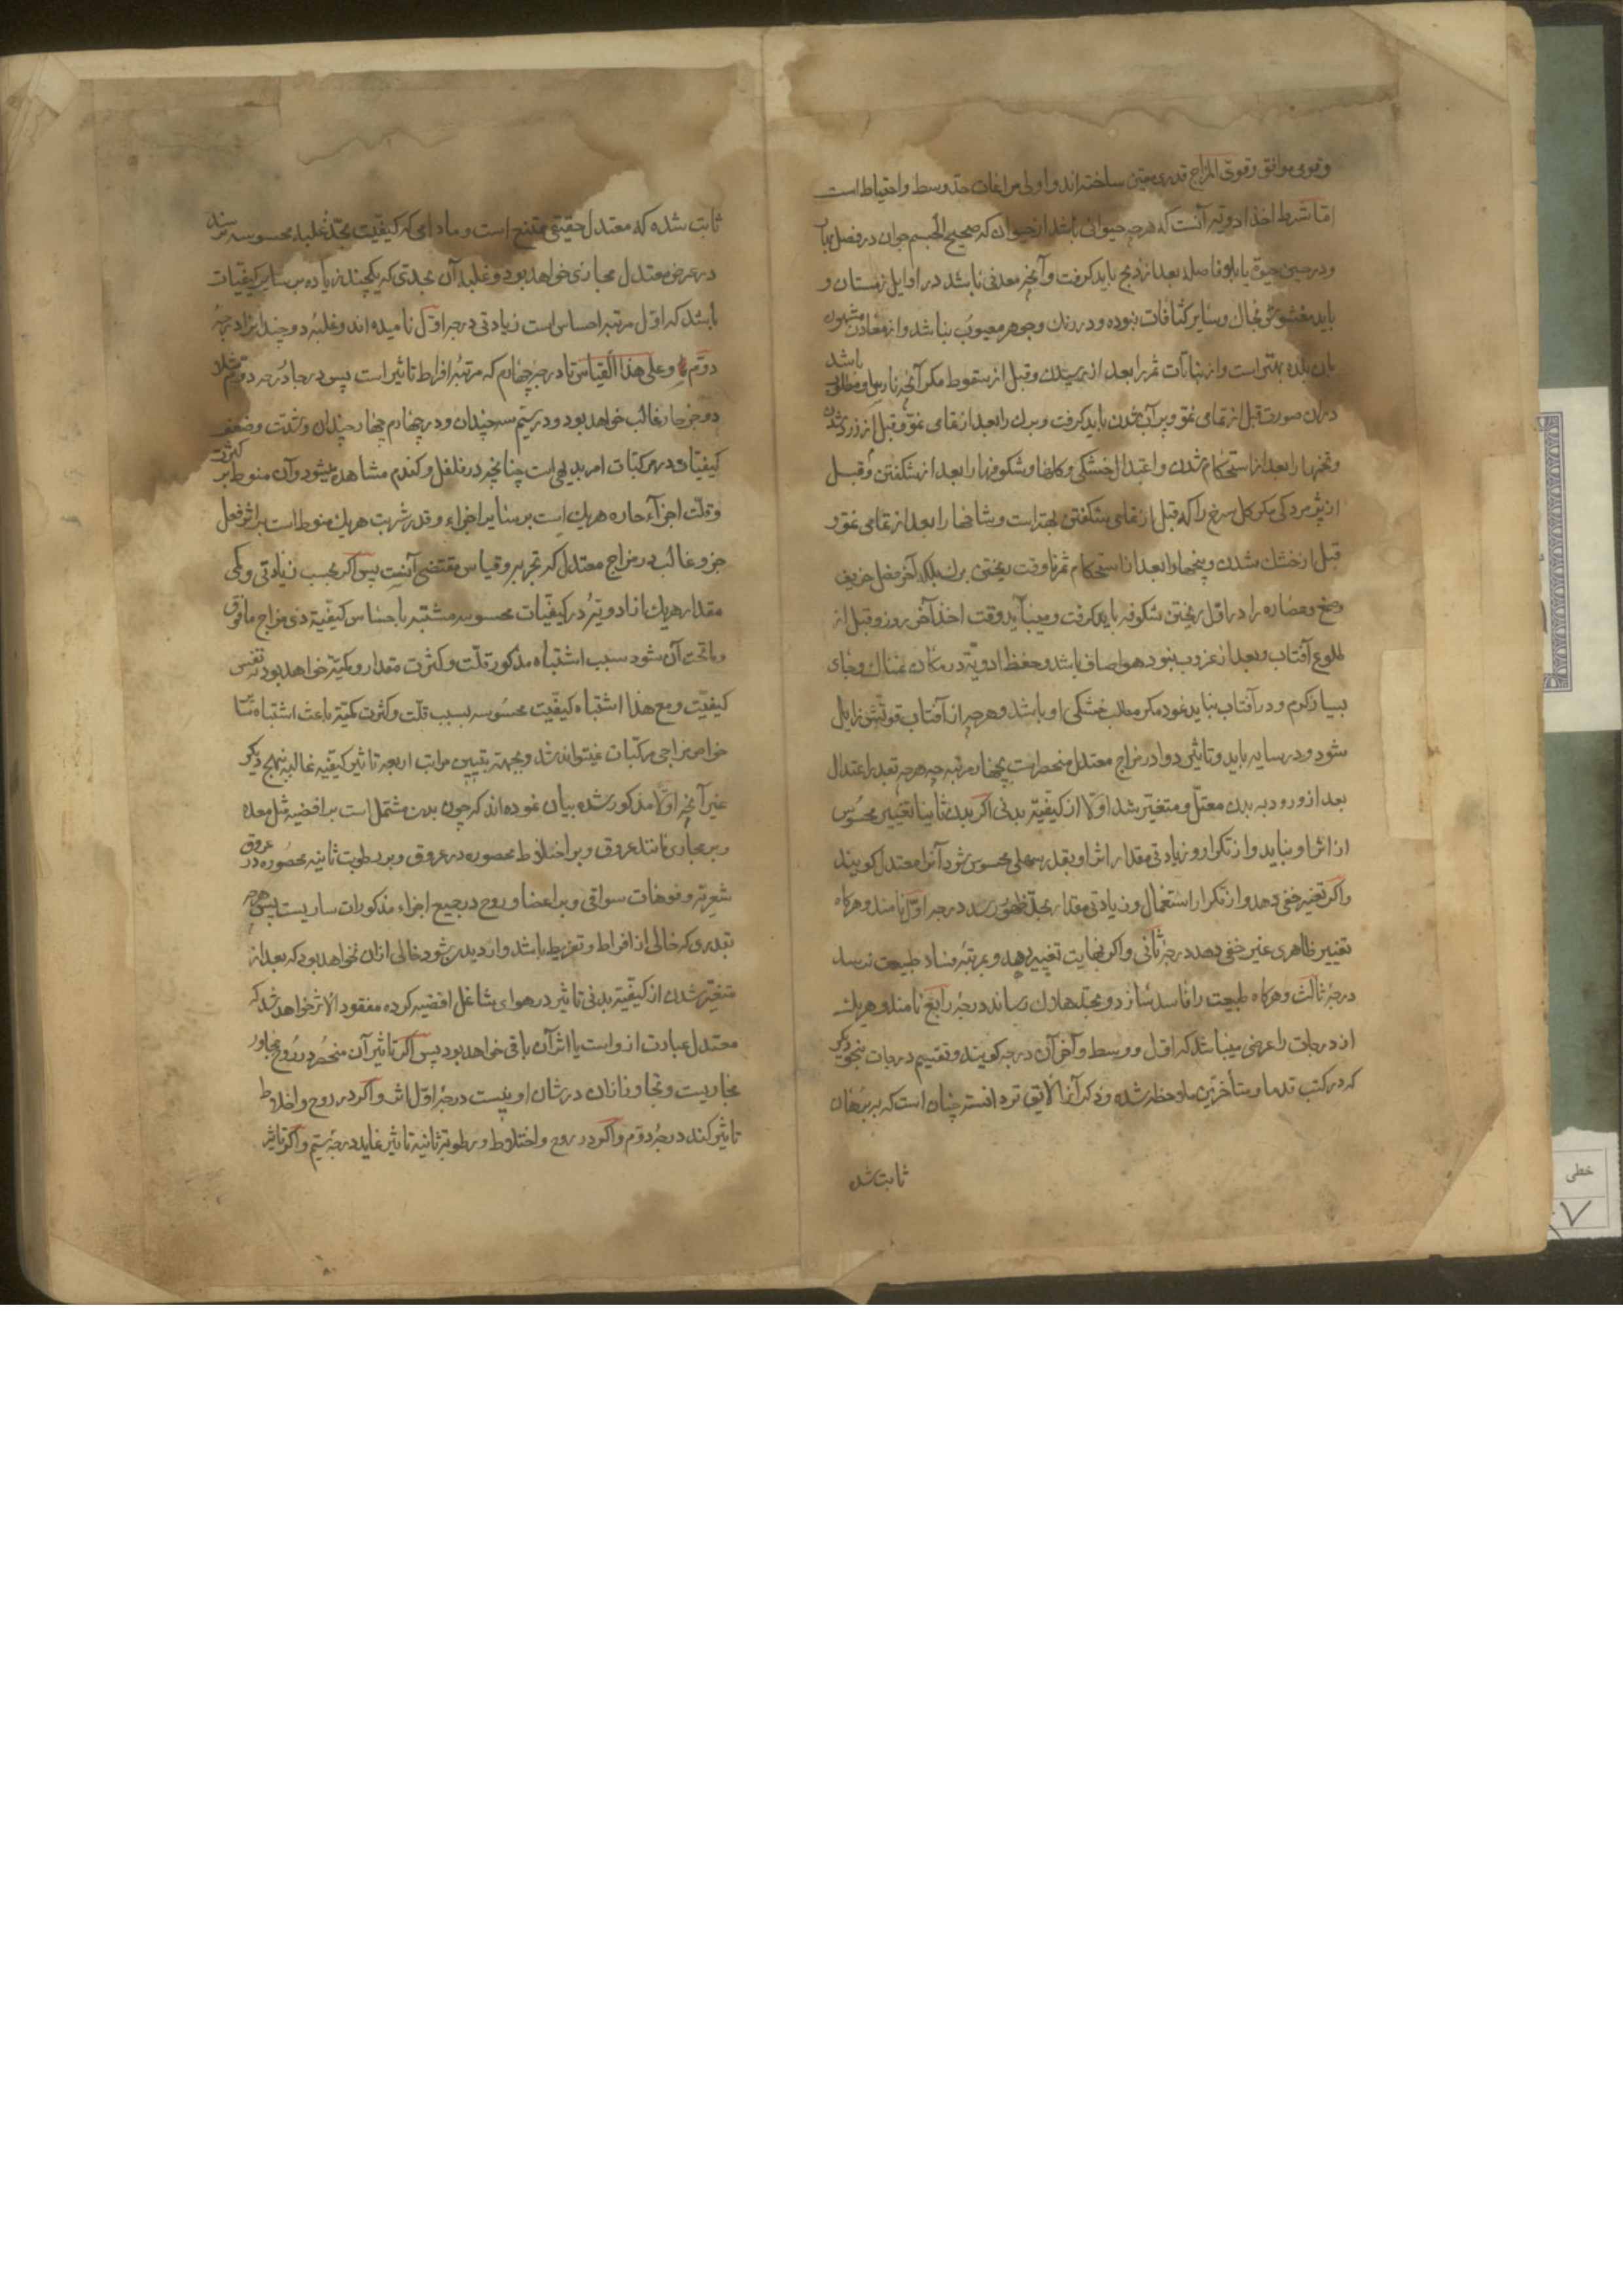 وقوی موافق وقوی المزاج قدری معین ساخته‌اند واولی مراعات حد وسط واحتیاط است
اما شرط اخذ ادویه آنست که هرچه حیوانی باشد از حیوان که صحیح الجسم جوان در فصل بهار
ودر حین حیوة یا بلا فاصله بعد از ذبح باید گرفت وآنچه معدنی باشد در اوایل زمستان و
باید مغشوش بخاک وسایر کثافات نبوده ودر رنک وجوهر معیوب نباشد واز معادن مشهور
بان بلده بهتر است واز نباتات ثمر را بعد از رسیدن وقبل از سقوط مکر آنچه نارس او مطلوب باشد
دران صورت قبل از تمامی نمو وپر آب شدن باید گرفت وبرک را بعد از تمامی نمو وقبل از زرد شدن
وتخمها را بعد از استحکام شدن واعتدال خشکی وکلها وشکوفها را بعد از شکفتن وقبل
از پژمردکی مکر کل سرخ را که قبل از تمامی شکفتن بهتر است وشاخها را بعد از تمامی نمو و
قبل از خشک شدن وبیخها را بعد از استحکام ثمر تا وقت ریختن برک بلکه آخر فصل خریف
وصمغ وعصاره را در اول ریختن شکوفه باید گرفت ومیباید وقت اخذ آخر روز وقبل از
طلوع آفتاب وبعد از غروب نبود هوا صاف باشد وحفظ ادویه در مکان نمناک وجای
بسیار کرم ودر آفتاب نباید نمود مکر مطلب خشکی او باشد وهرچه از آفتاب قوتش زایل
شود ودر سایه باید وتاثیر دوا در مزاج معتدل منحصر است بچهار مرتبه چه هرچه بقدر اعتدال
بعد از ورود به بدن معتدل ومتغیر شد اولا از کیفیة بدنی اکر بدن ثانیا تغییر محسوس
از اثر او نیابد واز تکرار وزیادتی مقدار اثر او بقدر سهلی محسوس شود آنرا معتدل کویند
واکر تغیر خفی دهد واز تکرار استعمال وزیادتی مقدار بحد ظهور رسد درجه اول نامند وهرکاه
تغییر ظاهری غیر خفی دهد درجه ثانی واکر بغایت تغییر دهد وبمرتبه فساد طبیعت نرسد
درجه ثالث وهرکاه طبیعت را فاسد سازد وبحد هلاک رساند درجه رابع نامند وهریک
از درجات را عرضی میباشد که اول ووسط وآخر آن درجه کویند وتقسیم درجات بنحو دیکر
که در کتب قدما ومتأخرین ملاحظه شده وذکر آنها لایق تر دانسته چنان است که به برهان
ثابت شده
ثابت شده که معتدل حقیقی ممتنع است وما دامی که کیفیت بحد غلبه محسوسه نرسد
در عرض معتدل مجازی خواهد بود وغلبه آن بحدی که یکچند زیاده بر سایر کیفیات
باشد که اول مرتبه احساس است زیادتی درجه اول نامیده اند وغلبه دو چندان را درجه
دوم وعلی هذا القیاس تا درجه چهارم که مرتبه افراط تاثیر است پس در حار درجه دوم مثلا
دو جزو حار غالب خواهد بود ودر سیم سه چندان ودر چهارم چهار چندان وشدت وضعف
کیفیات در مرکبات امر بدیهی است چنانچه در فلفل وکندم مشاهده میشود وآن منوط بر کثرت
وقلت اجزاء حاره هریک است بر سایر اجزاء وقدر شربت هریک منوط است بر اثر فعل
جزو غالب در مزاج معتدل که تجربه وقیاس مقتضی آنست پس اکر بحسب زیادتی وکمی
مقدار هریک از ادویه در کیفیات محسوسه مشتبه باحساس کیفیة ذی مزاج مافوق
وماتحت آن شود سبب اشتباه مذکور قلت وکثرت مقدار وکمیة خواهد بود نه نفس
کیفیت ومع هذا اشتباه کیفیت محسوسه بسبب قلت وکثرت کمیة باعث اشتباه سایر
خواص مزاجی مرکبات نمیتواند شد وبجهة تبیین مراتب اربعه تاثیر کیفیه غالبه بنهج دیکر
غیر آنچه اولا مذکور شده بیان نموده اند که چون بدن مشتمل است بر افضیه مثل معده
وبر مجاری مانند عروق وبر اخلاط محصوره در عروق وبر رطوبت ثانیه محصوره در عروق
شعریه وفوهات سواقی وبر اعضا وروح در جمیع اجزاء مذکورات ساریست پس هرچه
بقدری که خالی از افراط وتفریط باشد وارد بدن شود خالی ازان نخواهد بود که بعد از
متغیر شدن از کیفیة بدنی تاثیر در هوای شاغل افضیه کرده مفقود الاثر خواهد شد که
معتدل عبارت ازواست یا اثر آن باقی خواهد بود پس اکر تاثیر آن منحصر در روح مجاور
مجاریست وتجاوز ازان در شان او نیست درجه اول اش واکر در روح واخلاط
تاثیر کند درجه دوم واکر در روح واخلاط ورطوبة ثانیه تاثیر نماید درجه سیم واکر تاثیر
خطی